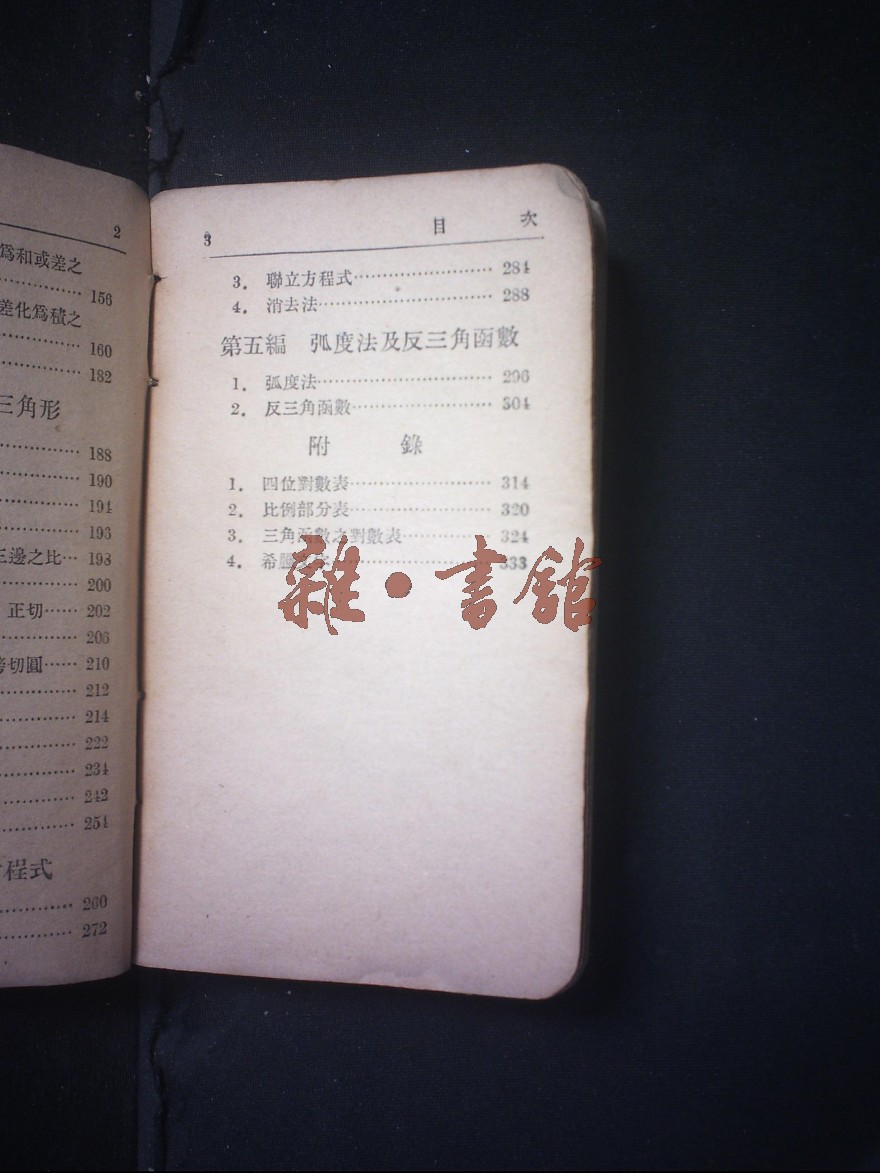 2
爲和或差之
156
差化爲積之
160
182
三角形
188
190
194
193
三邊之比… 198
200
正切…… 202
206
切圓…… 210
212
214
222
234
242
254
程式
260
272
3 目 次
3. 聯立方程式…………………… 284
4. 消去法………………………… 288
第五編 弧度法及反三角函數
1. 弧度法………………………… 296
2. 反三角函數…………………… 304
附 錄
1. 四位對數表…………………… 314
2. 比例部分表…………………… 320
3. 三角函數之對數表…………… 324
4. 希臘文字……………………… 333
雜·書館